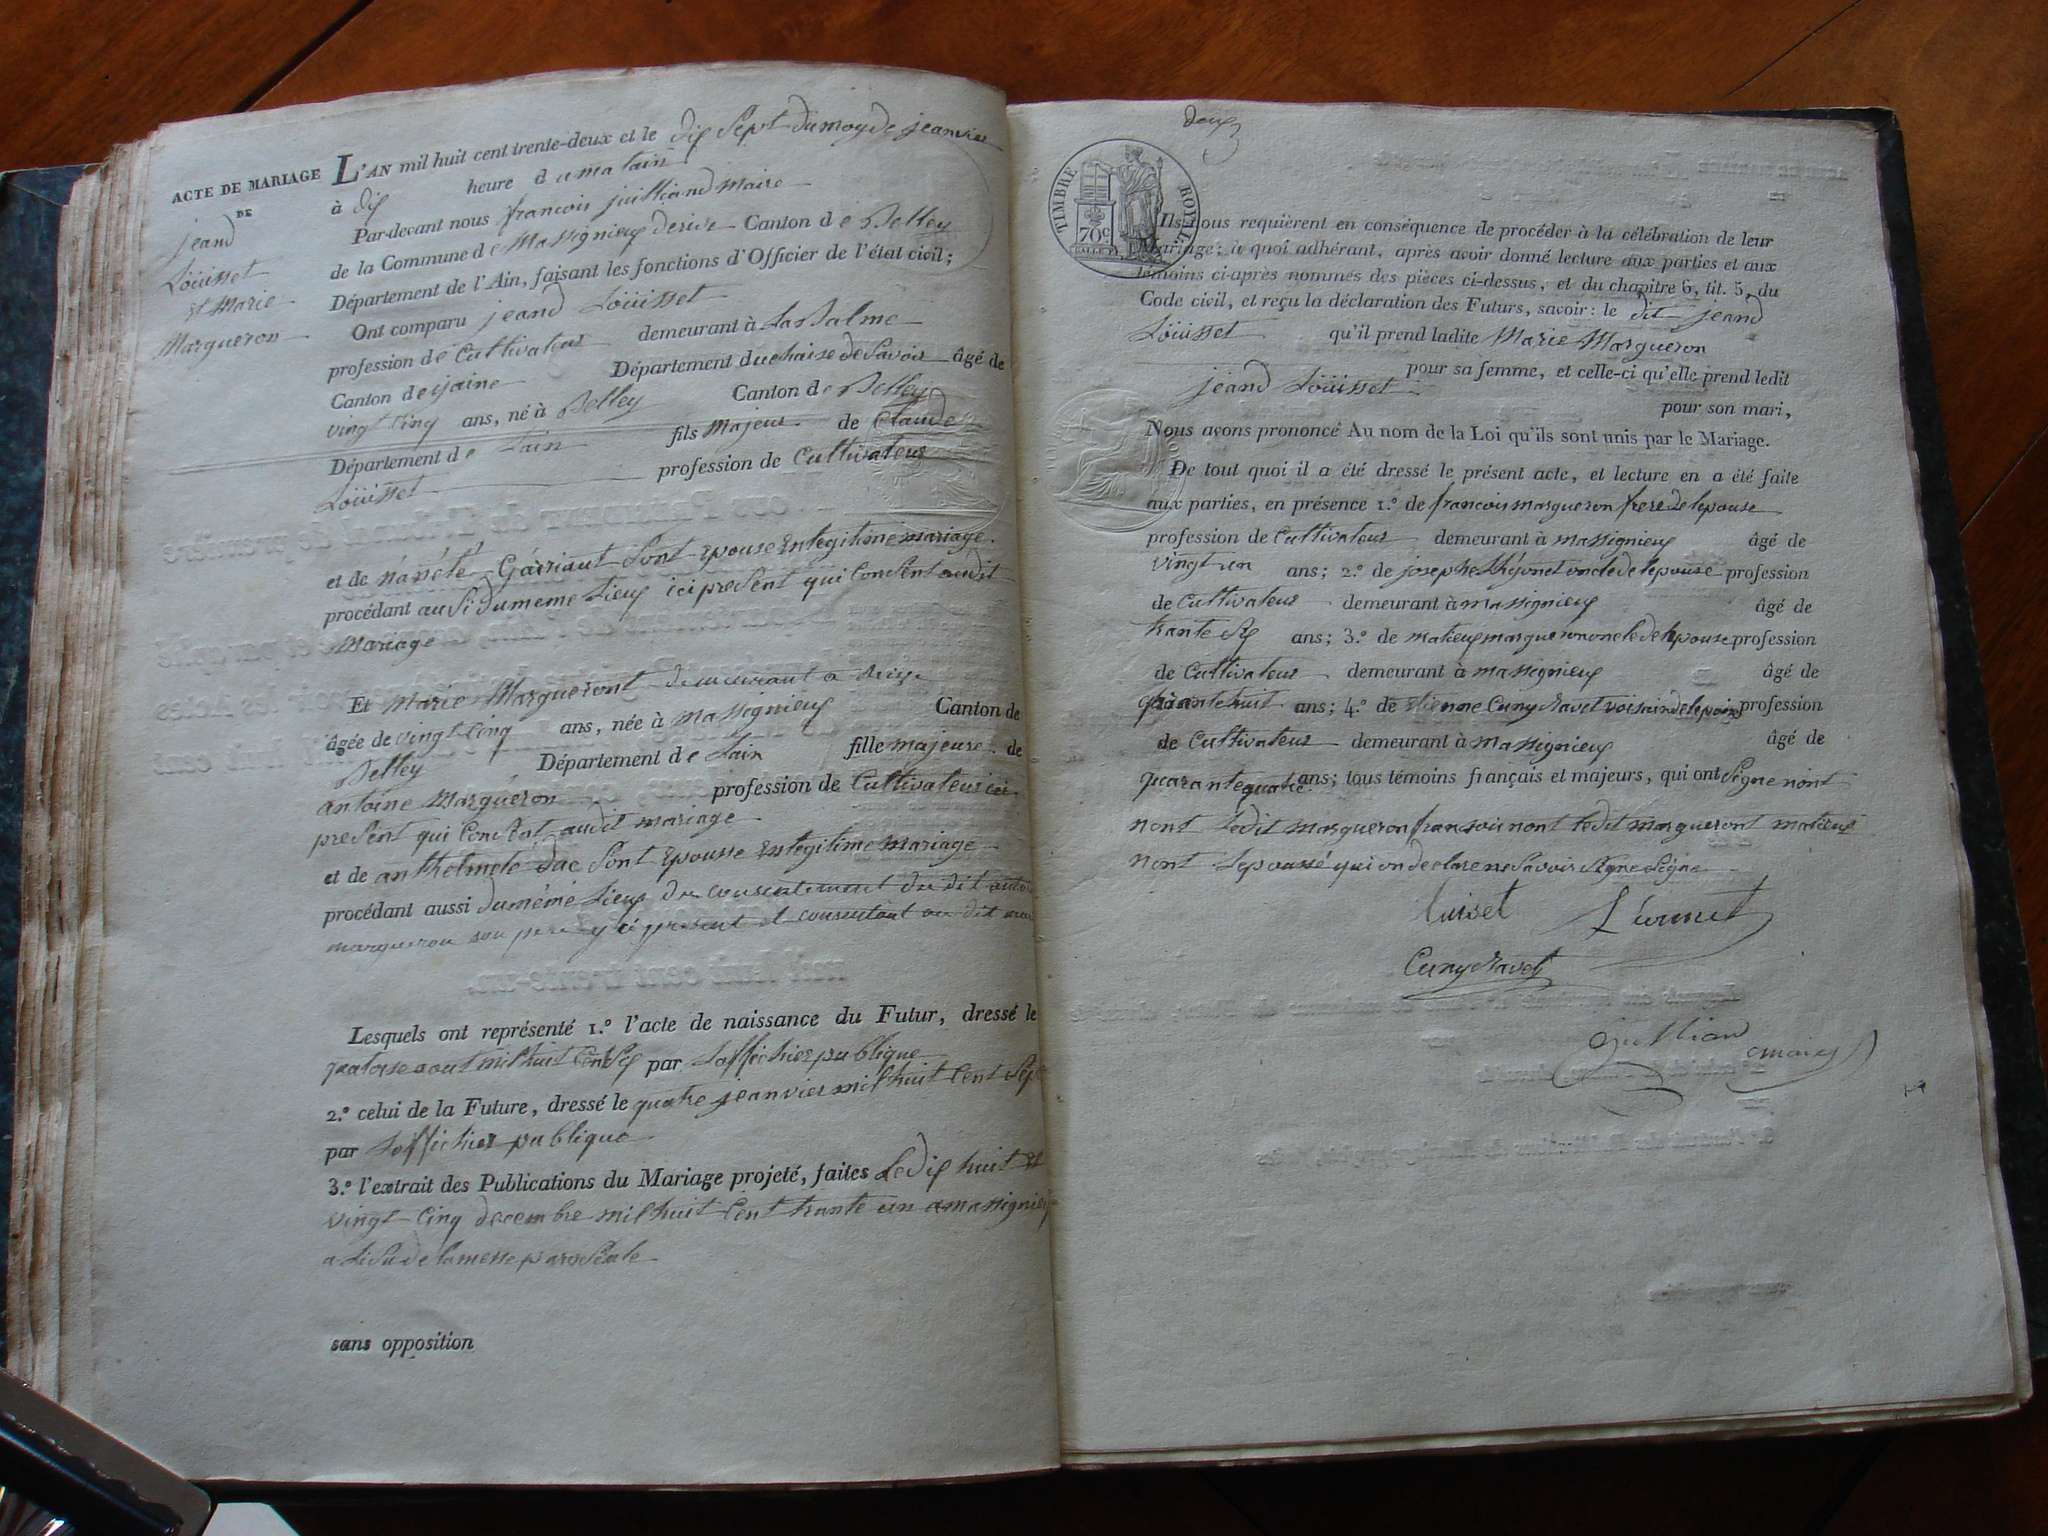 ACTE DE MARIAGE
DE
jeand
Loüisset
et Marie
Margueron
L'AN mil huit cent trente-deux et le dix Sept du moy de jeanvier
à dix heure du matain
Par-devant nous francois juilliand Maire
de la Commune de Massignieux de rive Canton de Belley
Département de l'Ain, faisant les fonctions d'Officier de l'état civil;
Ont comparu jeand Loüisset
profession de Cultivateur demeurant à La Balme
Canton de Département du de Savoir âgé de
vingt Cinq ans, né à Belley Canton de Belley
Département de Lain fils Majeur de Claude
Loüisset profession de Cultivateur
et de Sont Epouse En legitime mariage.
procédant au Si du meme Lieux ici present qui Consent audit
Mariage
Et Marie Margueront demeurant a
âgée de vingt Cinq ans, née à Massignieux Canton de
Belley Département de Lain fille majeure de
antoine Margueron profession de Cultivateur ici
present qui audit mariage
et de anthelmete Sont Epousse En legitime mariage
procédant aussi du même Lieux du consentement du dit
margueron son pere y ci present et consentant au dit
Lesquels ont représenté 1.º l'acte de naissance du Futur, dressé le
aout mil huit Cent Six par Laffichier publique
2.º celui de la Future, dressé le quatre jeanvier mil huit Cent Sept
par Laffichier publique
3.º l'extrait des Publications du Mariage projeté, faites Le dix huit et
vingt Cinq decembre mil huit Cent trante un a massignieux
a de la messe
sans opposition
deux
TIMBRE ROYAL
70c
Ils nous requièrent en conséquence de procéder à la célébration de leur
mariage; à quoi adhérant, après avoir donné lecture aux parties et aux
témoins ci-après nommés des pièces ci-dessus, et du chapitre 6, tit. 5, du
Code civil, et reçu la déclaration des Futurs, savoir: le dit jeand
Loüisset qu'il prend ladite Marie Margueron
pour sa femme, et celle-ci qu'elle prend ledit
jeand Loüisset pour son mari,
Nous avons prononcé Au nom de la Loi qu'ils sont unis par le Mariage.
De tout quoi il a été dressé le présent acte, et lecture en a été faite
aux parties, en présence 1.º de francois margueron frere de lepouse
profession de Cultivateur demeurant à massignieux âgé de
vingt un ans; 2.º de josephe oncle de lepouse profession
de Cultivateur demeurant à massignieux âgé de
trante Six ans; 3.º de matieux margueron oncle de lepouse profession
de Cultivateur demeurant à massignieux âgé de
huit ans; 4.º de etienne Cuny Ravet voisain de profession
de Cultivateur demeurant à massignieux âgé de
quarante quatre ans; tous témoins français et majeurs, qui ont Signe nont
nont Ledit margueron fransois nont ledit margueront matieux
nont Lepoussé qui on declare ne Savoir Signe
luiset
Cuny Ravet
maire